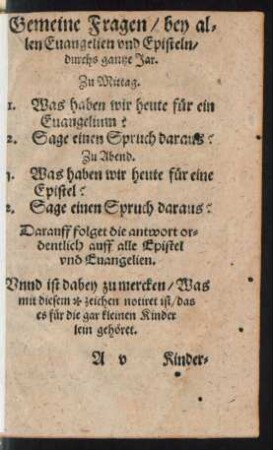 Gemeine Fragen / bey al-
len Euangelien vnd Episteln /
durchs gantze Jar.
Zu Mittag.
1. Was haben wir heute für ein
Euangelium?
2. Sage einen Spruch daraus?
Zu Abend.
1. Was haben wir heute für eine
Epistel?
2. Sage einen Spruch daraus?
Darauff folget die antwort or-
dentlich auff alle Epistel
vnd Euangelien.
Vnnd ist dabey zu mercken / Was
mit diesem * zeichen notiret ist / das
es für die gar kleinen Kinder
lein gehöret.
A v Kinder-